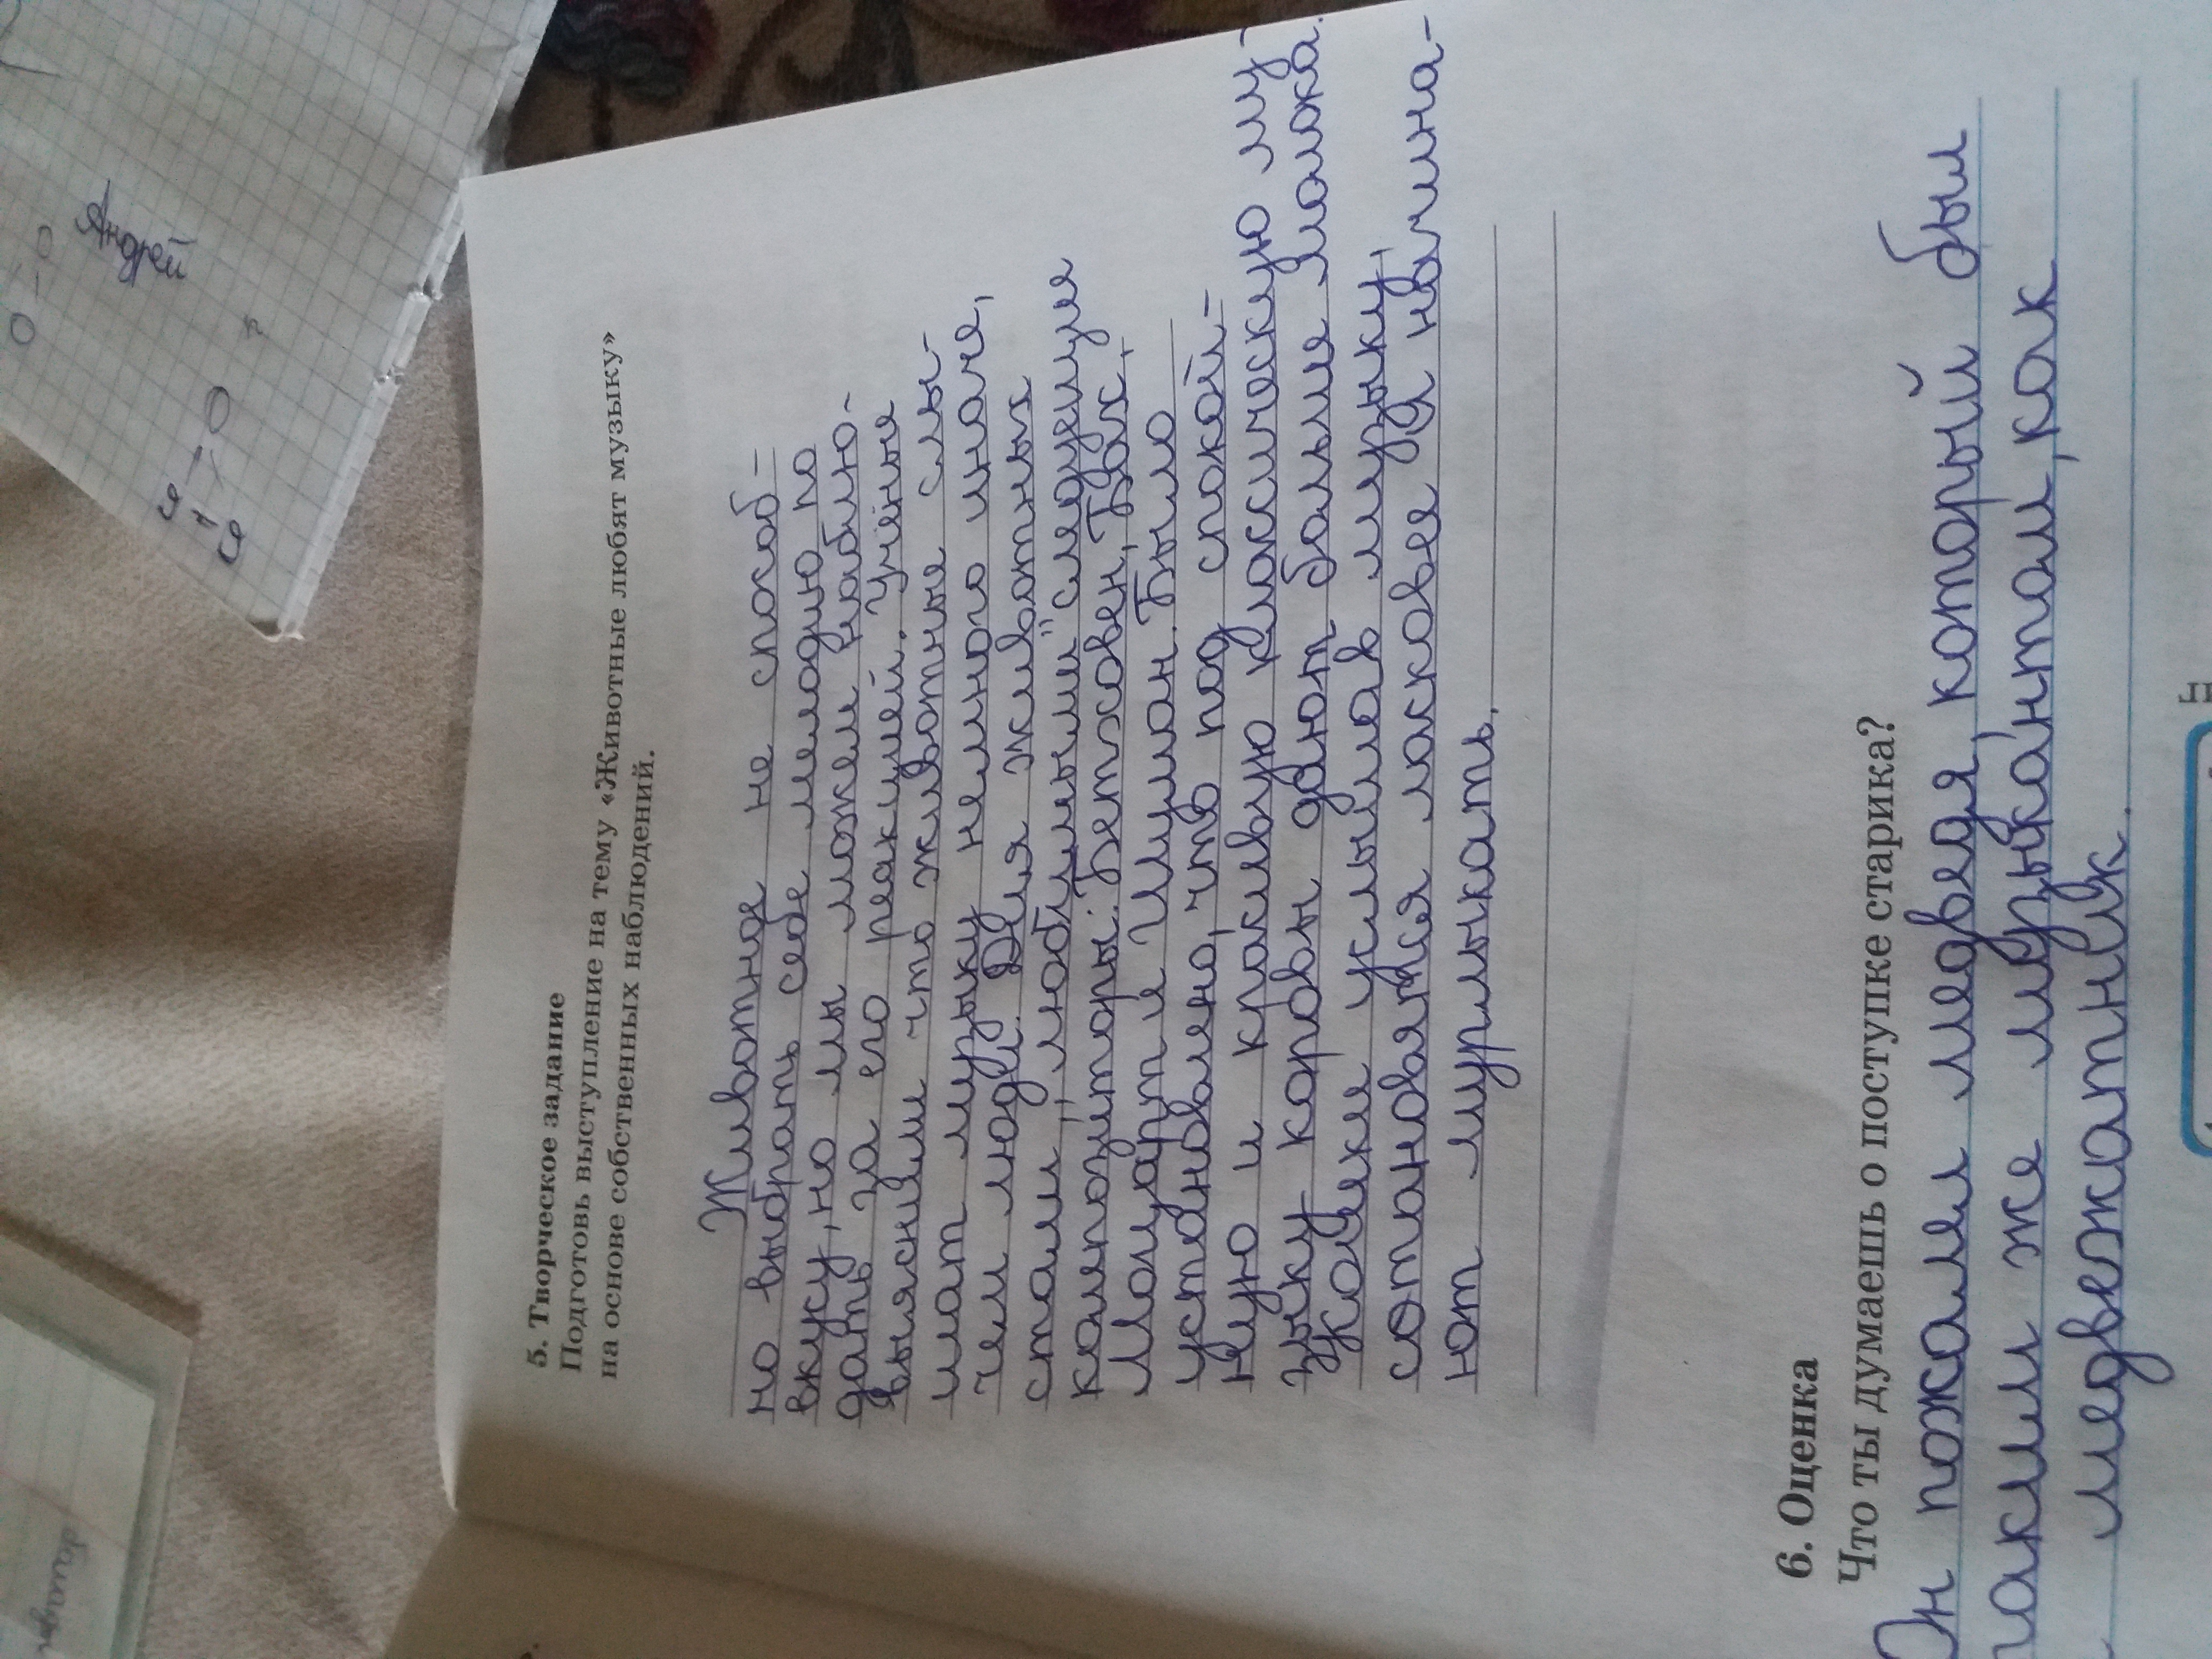 5. Творческое задание
Подготовь выступление на тему «Животные любят музыку»
на основе собственных наблюдений.
Животное не способ-
но выбрать себе мелодию по
вкусу, но мы можем наблю-
дать за его реакцией. Учёные
выяснили что животные слы-
шат музыку немного иначе,
чем люди. Для животных
стали ,,любимыми" следующие
композиторы: Бетховен, Бах,
Моцарт и Шуман. Было
установлено, что под спокой-
ную и красивую классическую му-
зыку коровы дают больше молока.
Кошеки услышав музыку,
становятся ласковее и начина-
ют мурлыкать.
6. Оценка
Что ты думаешь о поступке старика?
Он пожалел медведя, который был
таким же музыкантом, как
и медвежатник.
Андрей